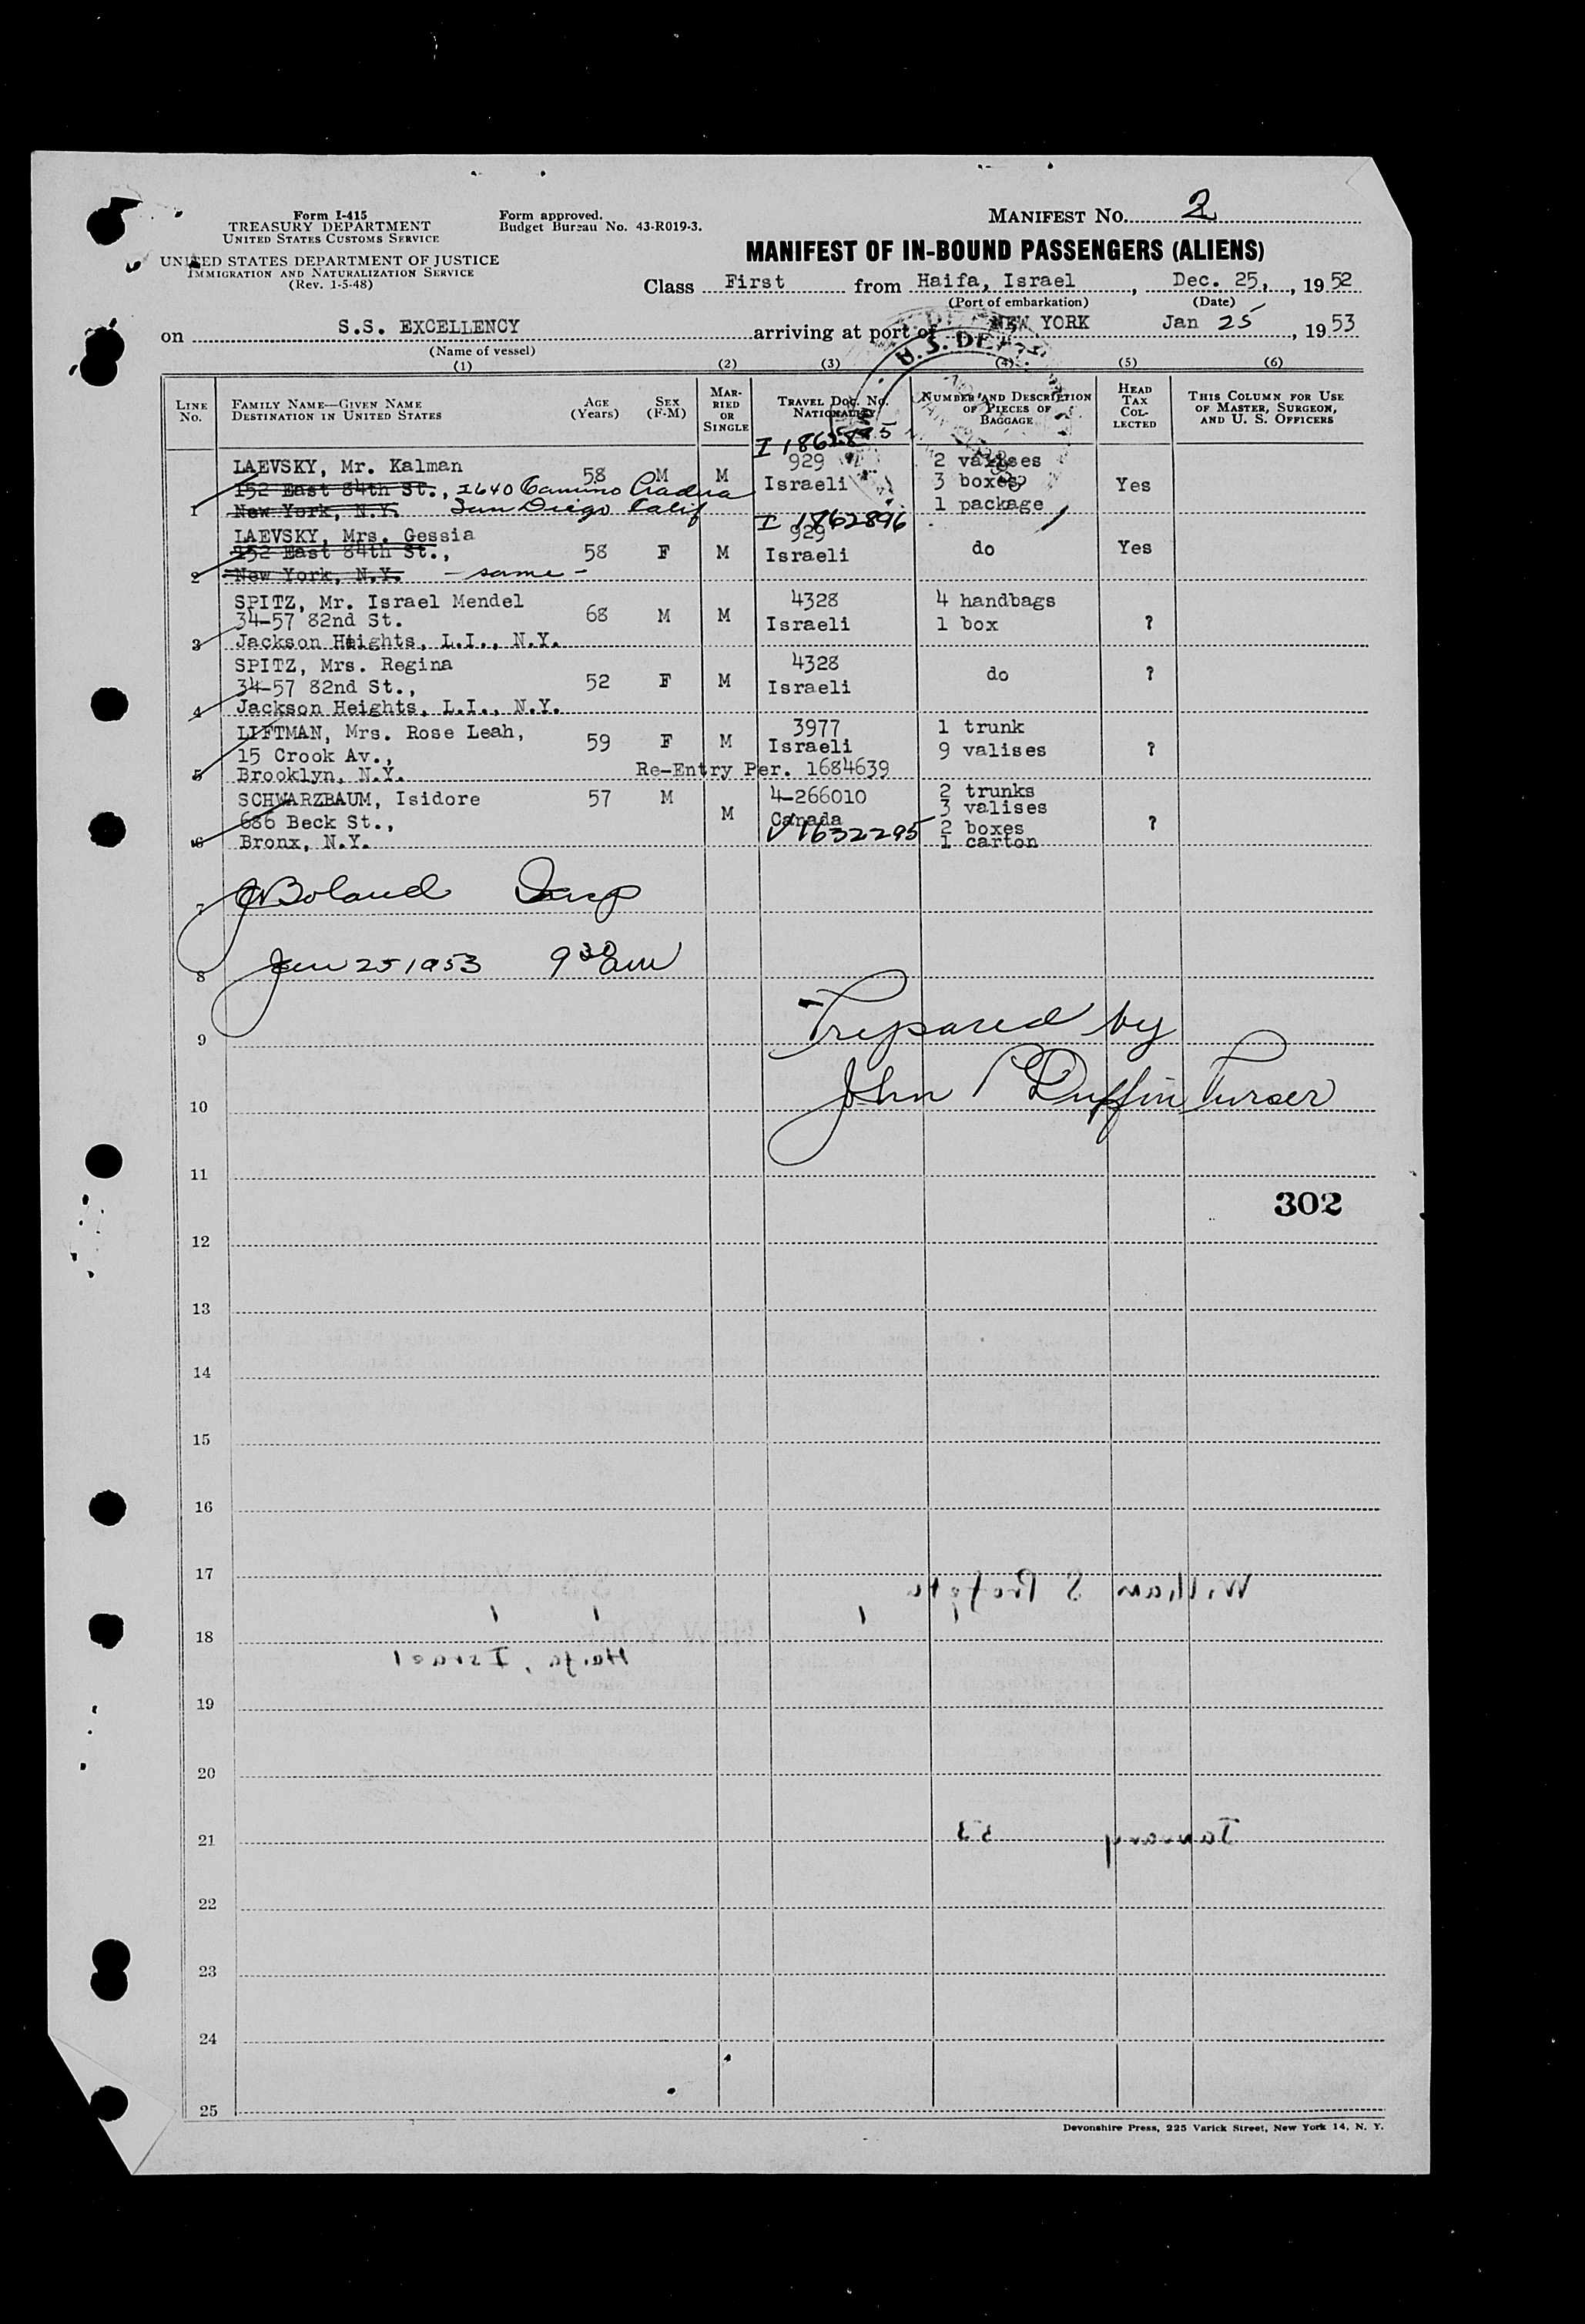 Form I-415
TREASURY DEPARTMENT
UNITED STATES CUSTOMS SERVICE
UNITED STATES DEPARTMENT OF JUSTICE
IMMIGRATION AND NATURALIZATION SERVICE
(Rev. 1-5-48)
Form approved.
Budget Bureau No. 43-R019-3.
MANIFEST NO. 2
MANIFEST OF IN-BOUND PASSENGERS (ALIENS)
Class First from Haifa, Israel, Dec. 25, , 1952
(Port of embarkation) (Date)
on S.S. EXCELLENCY arriving at port of NEW YORK Jan 25, 1953
(Name of vessel)
(1) (2) (3) (4) (5) (6)
LINE NO. FAMILY NAME—GIVEN NAME DESTINATION IN UNITED STATES AGE (Years) SEX (F-M) MARRIED OR SINGLE TRAVEL DOC. NO. NATIONALITY NUMBER AND DESCRIPTION OF PIECES OF BAGGAGE HEAD TAX COLLECTED THIS COLUMN FOR USE OF MASTER, SURGEON, AND U. S. OFFICERS
U.S. DE
I 1862895
LAEVSKY, Mr. Kalman 58 M M 929 2 valises
152 East 84th St., 2640 Camino Israeli 3 boxes Yes
1 New York, N.Y. San Diego Calif 1 package
I 1862896
LAEVSKY, Mrs. Gessia 929
152 East 84th St., 58 F M Israeli do Yes
2 New York, N.Y. - same -
SPITZ, Mr. Israel Mendel 4328 4 handbags
34-57 82nd St. 68 M M Israeli 1 box ?
3 Jackson Heights, L.I., N.Y.
SPITZ, Mrs. Regina 4328
34-57 82nd St., 52 F M Israeli do ?
4 Jackson Heights, L.I., N.Y.
LIFTMAN, Mrs. Rose Leah, 3977 1 trunk
15 Crook Av., 59 F M Israeli 9 valises ?
5 Brooklyn, N.Y. Re-Entry Per. 1684639
SCHWARZBAUM, Isidore 57 M 4-266010 2 trunks
3 valises
686 Beck St., M Canada 2 boxes ?
6 Bronx, N.Y. V1632295 1 carton
7 Boland Insp
8 Jan 25 1953 9 30 am
9 Prepared by
10 John P Duffin Purser
11
302
12
13
14
15
16
17 William S
18
Haifa, Israel
19
20
21 January 53
22
23
24
25
Devonshire Press, 225 Varick Street, New York 14, N. Y.